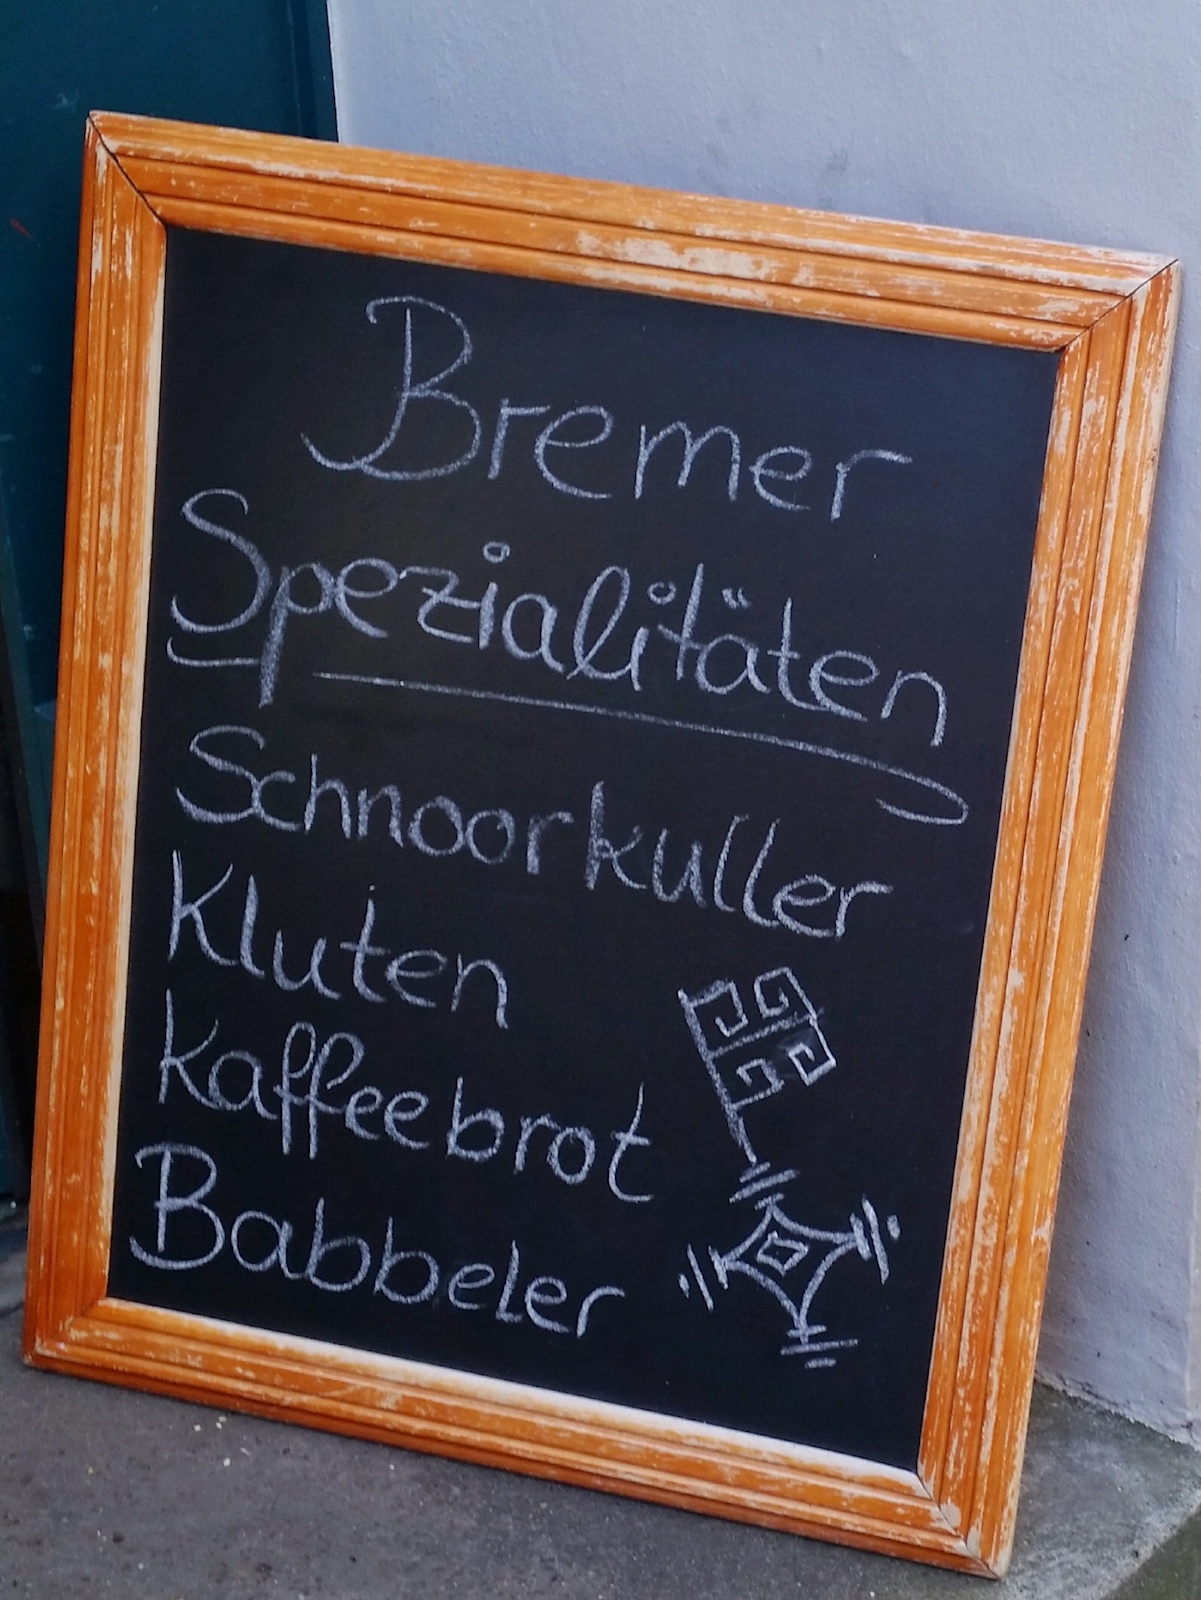 Bremer
Spezialitäten
Schnoorkuller
Kluten
Kaffeebrot
Babbeler